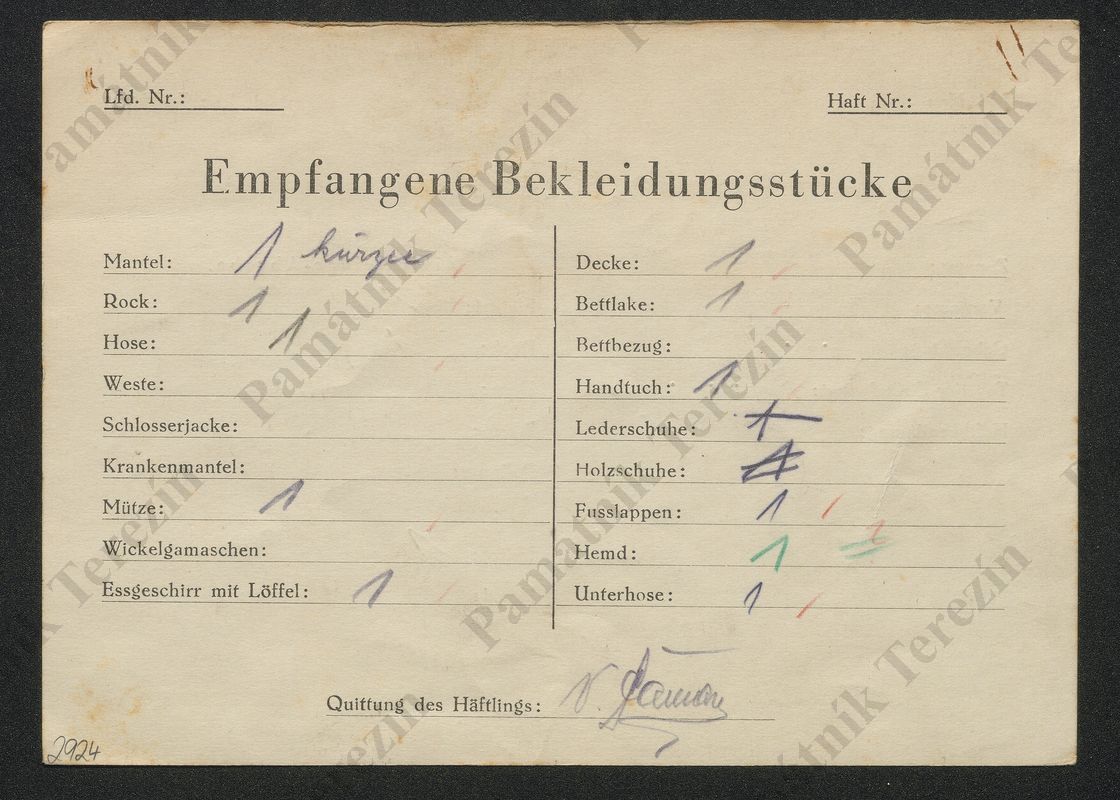 Lfd. Nr.:
Haft Nr.:
Empfangene Bekleidungsstücke
Mantel: 1 kürzer
Rock: 1
Hose: 1
Weste:
Schlosserjacke:
Krankenmantel:
Mütze: 1
Wickelgamaschen:
Essgeschirr mit Löffel: 1
Decke: 1
Bettlake: 1
Bettbezug:
Handtuch: 1
Lederschuhe: 1
Holzschuhe: 1
Fusslappen: 1
Hemd: 1
Unterhose: 1
Quittung des Häftlings:
2924
Památník Terezín